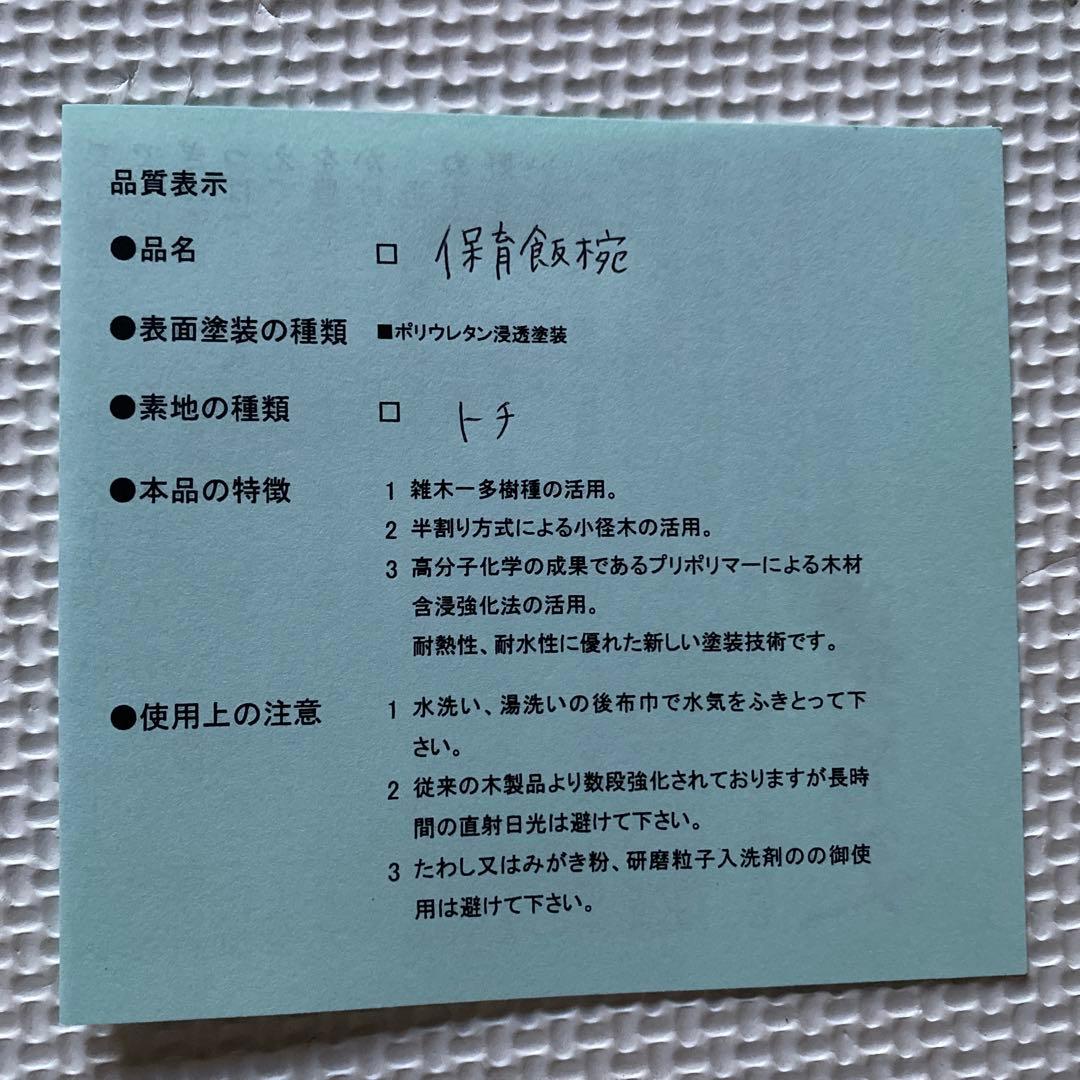 品質表示
●品名 □ 保育飯椀
●表面塗装の種類 ■ポリウレタン浸透塗装
●素地の種類 □ トチ
●本品の特徴 1 雑木一多樹種の活用。
2 半割り方式による小径木の活用。
3 高分子化学の成果であるプリポリマーによる木材
含浸強化法の活用。
耐熱性、耐水性に優れた新しい塗装技術です。
●使用上の注意 1 水洗い、湯洗いの後布巾で水気をふきとって下
さい。
2 従来の木製品より数段強化されておりますが長時
間の直射日光は避けて下さい。
3 たわし又はみがき粉、研磨粒子入洗剤のの御使
用は避けて下さい。